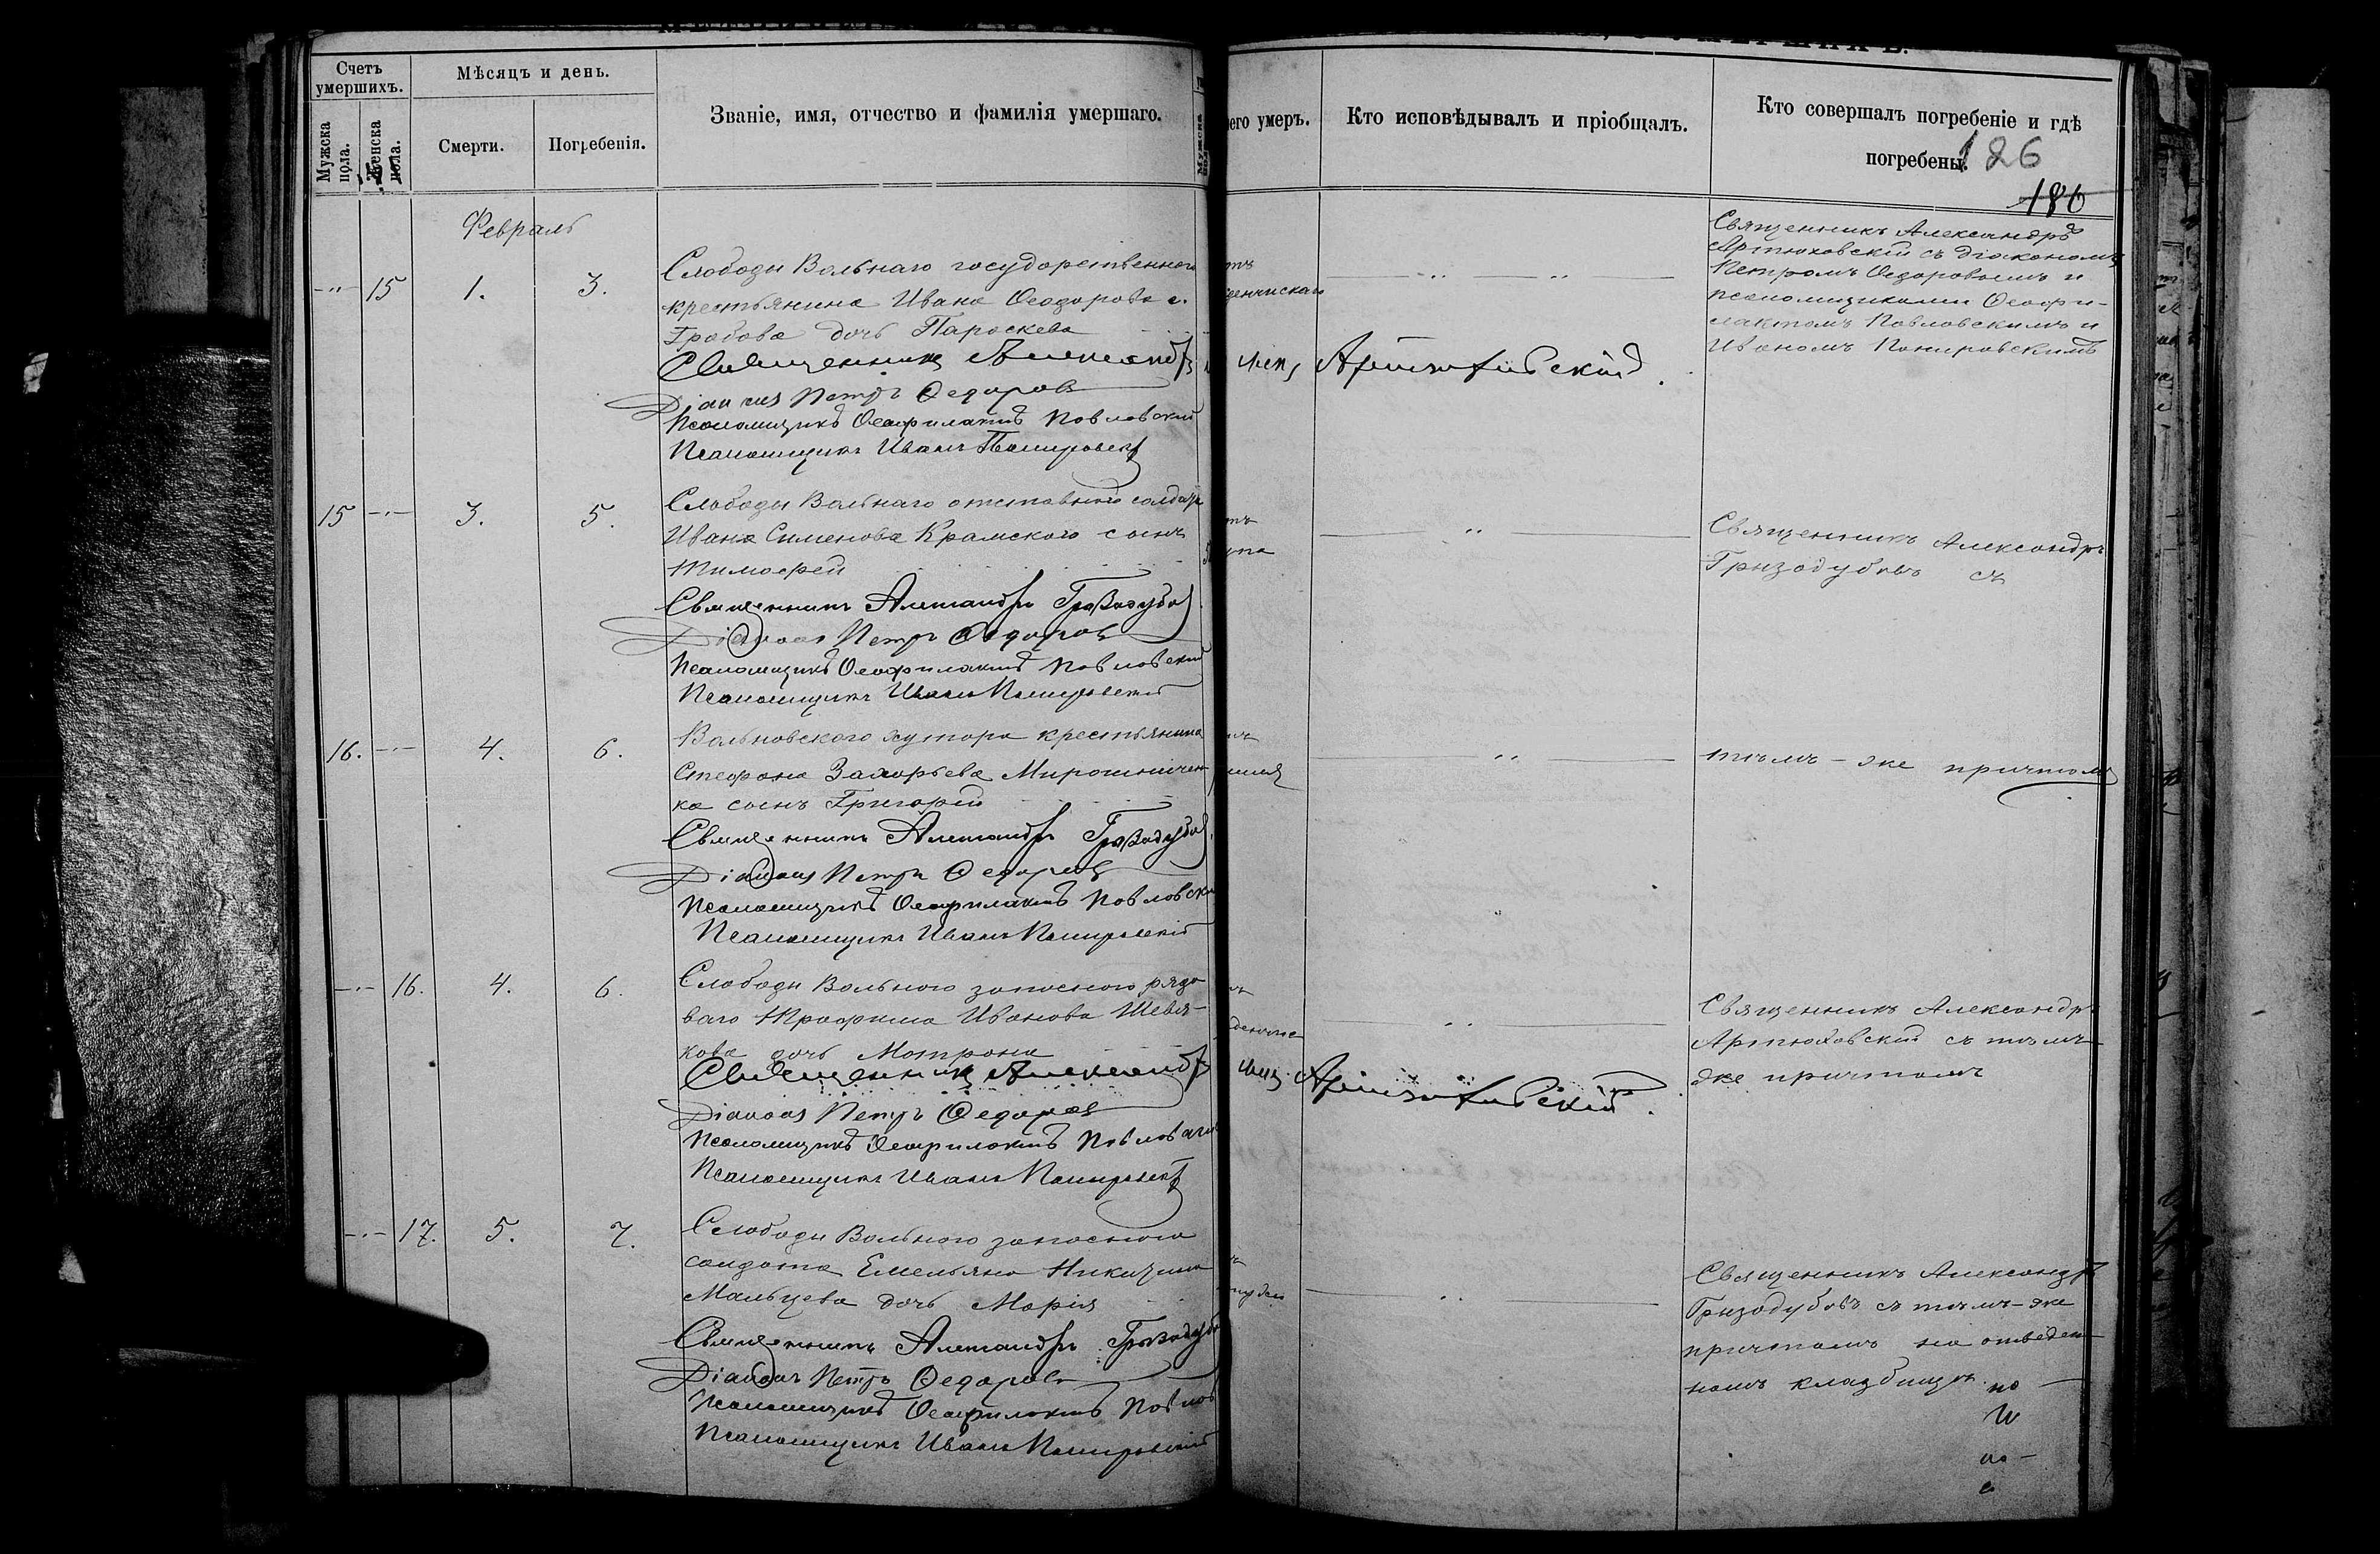 Счетъ
умершихъ.
Мѣсяцъ и день.
Званіе, имя, отчество и фамилія умершаго.
Мужска
пола.
Женска
пола.
Смерти.
Погребенія.
Февраль
15
1.
3.
Слободы Вольнаго государственнаго
крестьянина Ивана Ѳеодорова
Грабова дочь Параскева
Священникъ Александръ
Діаконъ Петръ Ѳедоровъ
Псаломщикъ Ѳеофилактъ Павловскій
Псаломщикъ Иванъ
15
3.
5.
Слободы Вольнаго отставнаго солдата
Ивана Сименова Крамскаго сынъ
Тимоѳей
Священникъ Александръ Грызодубовъ
Діаконъ Петръ Ѳедоровъ
Псаломщикъ Ѳеофилактъ Павловскій
Псаломщикъ Иванъ
16.
4.
6.
Вольновскаго хутора крестьянина
Стефана Захарьева Мирошничен-
ка сынъ Григорій
Священникъ Александръ Грызодубовъ
Діаконъ Петръ Ѳедоровъ
Псаломщикъ Ѳеофилактъ Павловскій
Псаломщикъ Иванъ
16.
4.
6.
Слободы Вольнаго запаснаго рядо-
ваго Иванова Шевля-
кова дочь Матрона
Священникъ Александръ
Діаконъ Петръ Ѳедоровъ
Псаломщикъ Ѳеофилактъ
Псаломщикъ Иванъ
17.
5.
7.
Слободы Вольнаго запаснаго
солдата Емельяна Никитина
Мальцева дочь Марія
Священникъ Александръ
Діаконъ Петръ Ѳедоровъ
Псаломщикъ Ѳеофилактъ
Псаломщикъ Иванъ
чего умеръ.
Кто исповѣдывалъ и пріобщалъ.
Кто совершалъ погребеніе и гдѣ
погребены.
126
186
Артюховскій
Артюховскій
Священникъ Александръ
Артюховскій съ діакономъ
Петромъ Ѳедоровымъ и
псаломщиками Ѳеофи-
лактомъ Павловскимъ и
Иваномъ
Священникъ Александръ
Грызодубовъ съ
тѣмъ-же причтомъ
Священникъ Александръ
Артюховскій съ тѣмъ-
же причтомъ
Священникъ Александръ
Грызодубовъ съ тѣмъ-же
причтомъ на отведен-
номъ кладбищѣ.